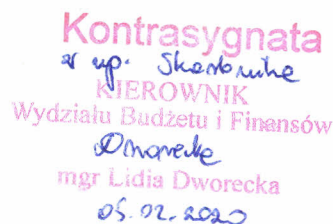 Kontrasygnata
z up. Skarbnika
KIEROWNIK
Wydziału Budżetu i Finansów
Dworecka
mgr Lidia Dworecka
05.02.2020